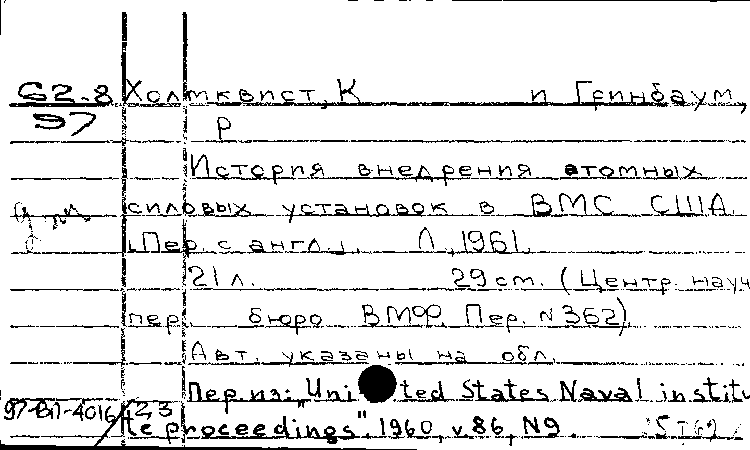 G2-8 Холмквист, К и Гринбаум,
97 Р
История внедрения атомных
силовых установок в ВМС США.
[Пер. с англ.]. Л., 1961.
21 л. 29 cm. (Центр. науч
пер. бюро ВМФ. Пер. N 362)
Авт. указаны на обл.
Пер. из: "United States Naval institu
97-ВП-4016/2,3 te proceedings". 1960, v. 86, N9.